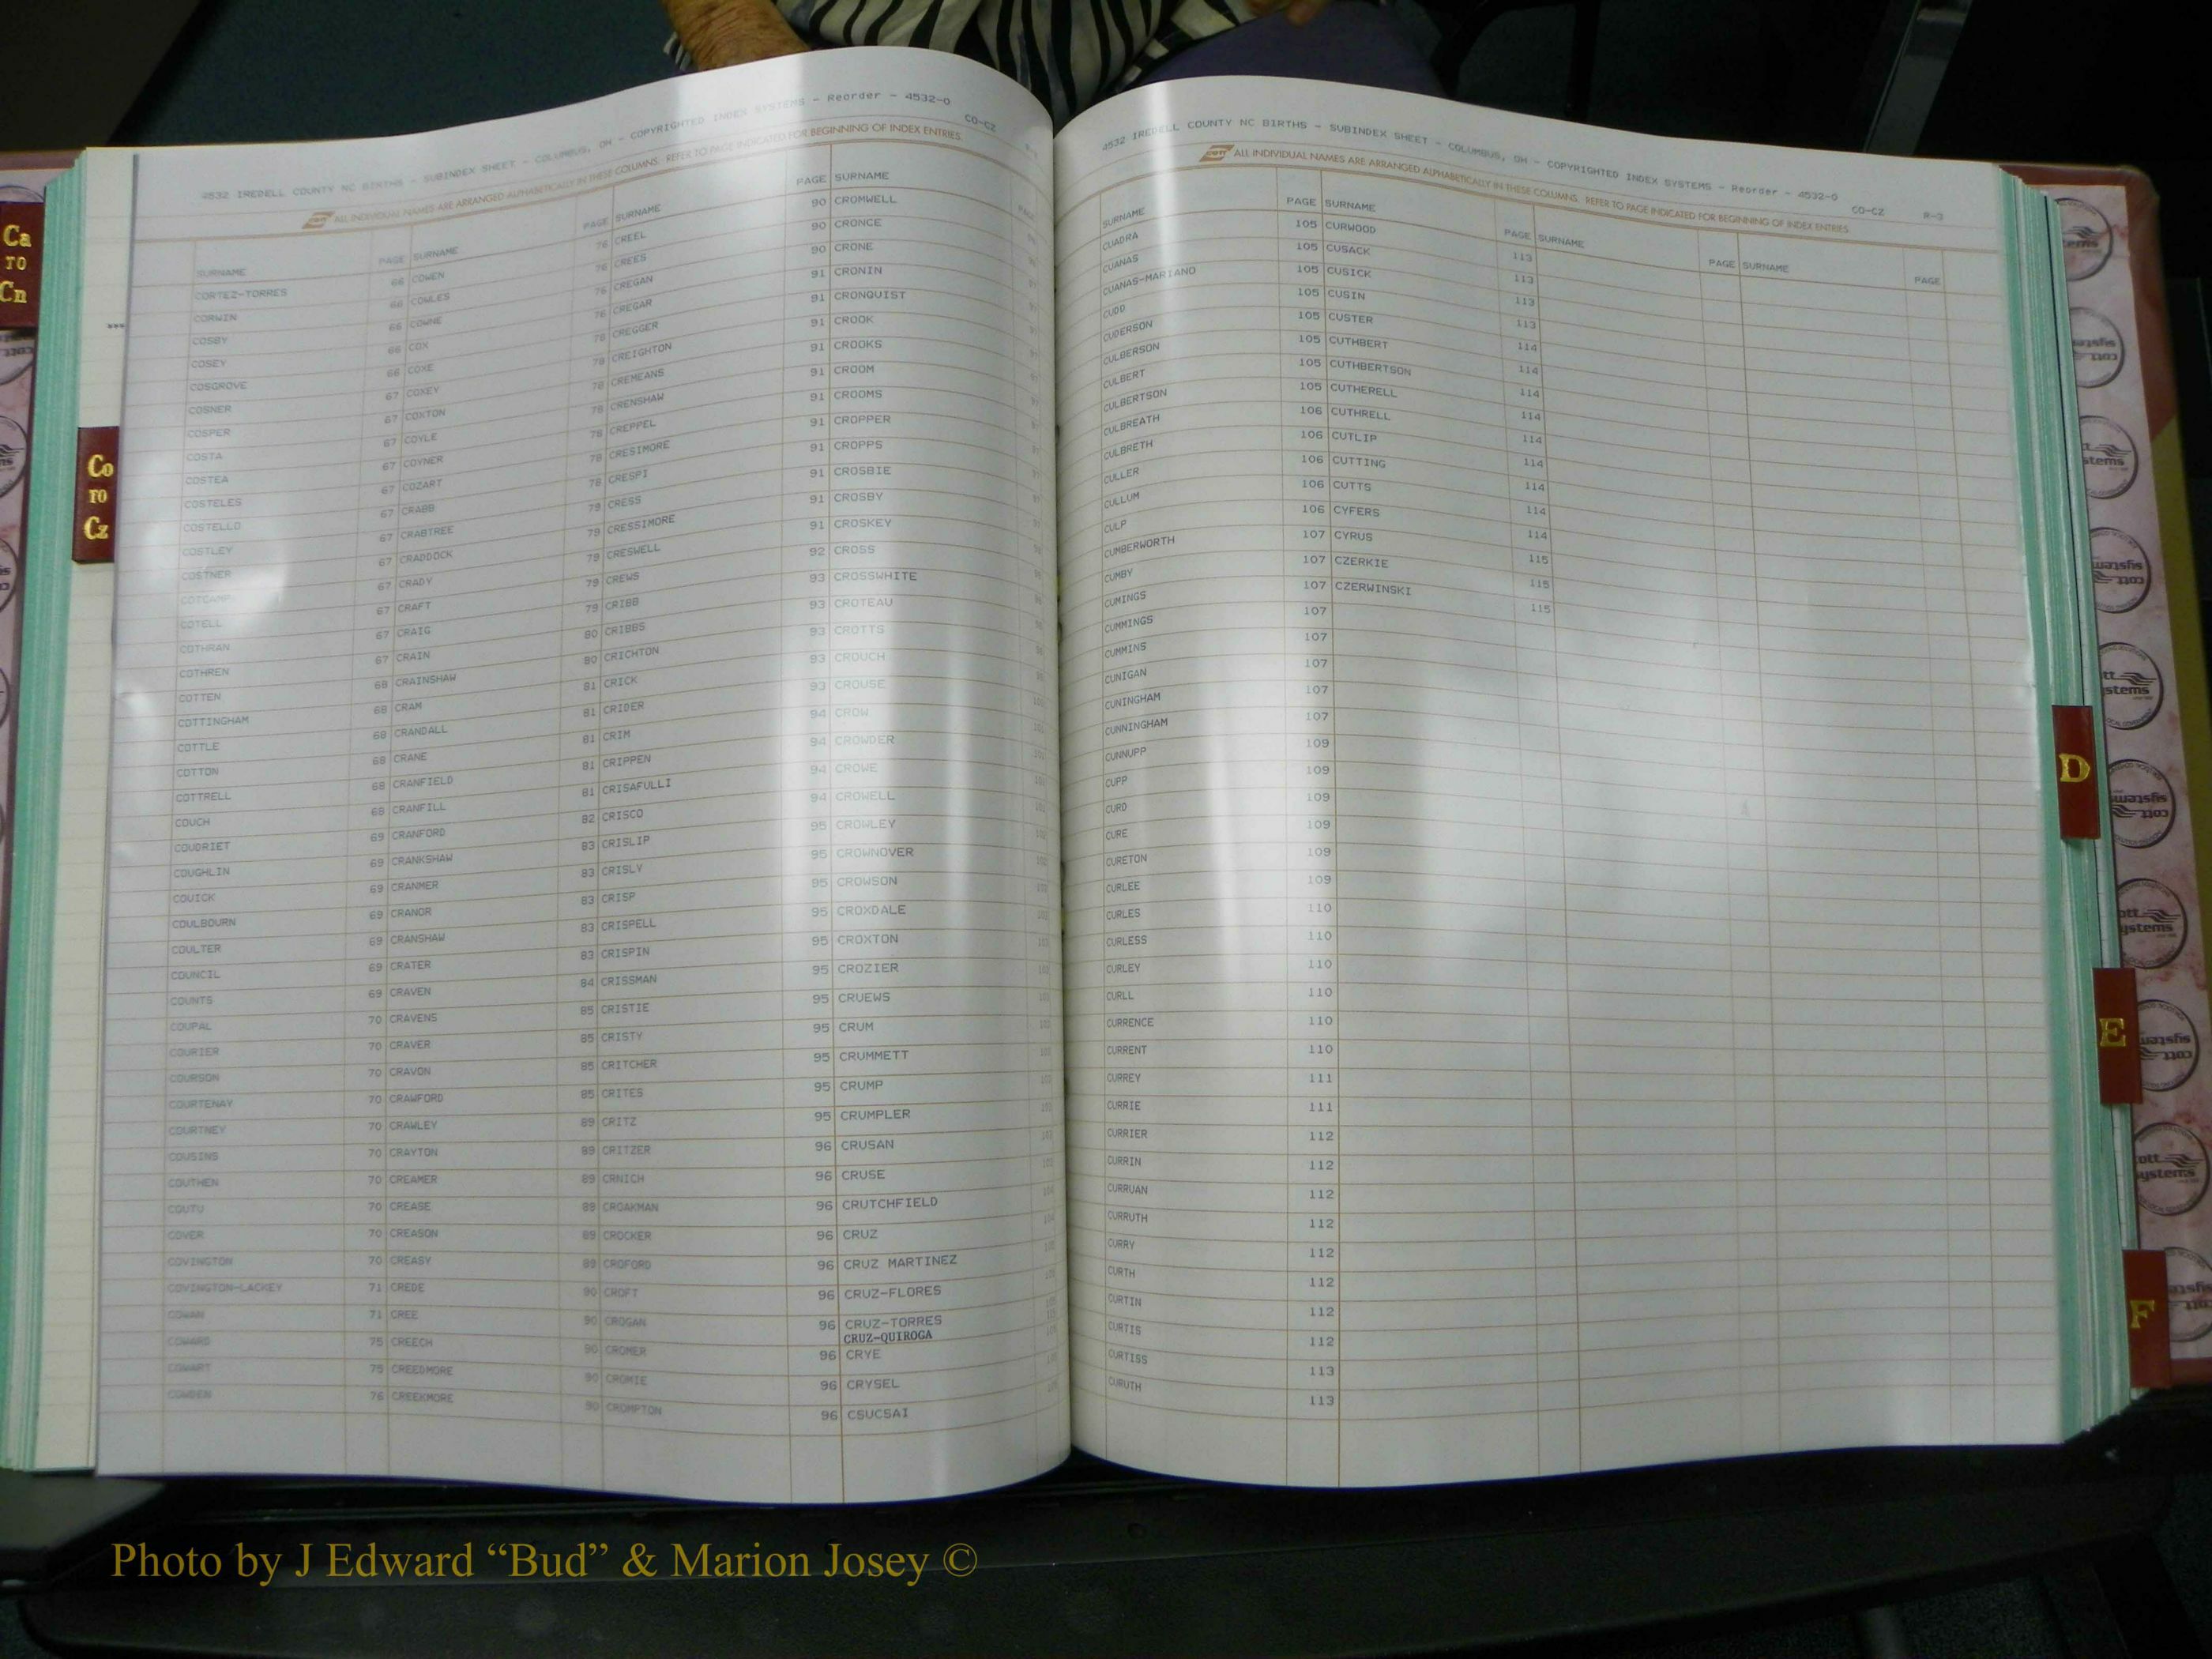 Ca
TO
Cn
Co
TO
Cz
4532 IREDELL COUNTY NC BIRTHS - SUBINDEX SHEET - COLUMBUS, OH - COPYRIGHTED INDEX SYSTEMS - Reorder - 4532-0 CO-CZ
ALL INDIVIDUAL NAMES ARE ARRANGED ALPHABETICALLY IN THESE COLUMNS. REFER TO PAGE INDICATED FOR BEGINNING OF INDEX ENTRIES.
SURNAME PAGE
CORTEZ-TORRES 66
CORWIN 66
COSBY 66
COSEY 66
COSGROVE 66
COSNER 67
COSPER 67
COSTA 67
COSTEA 67
COSTELES 67
COSTELLO 67
COSTLEY 67
COSTNER 67
COTCAMP 67
COTELL 67
COTHRAN 67
COTHREN 67
COTTEN 68
COTTINGHAM 68
COTTLE 68
COTTON 68
COTTRELL 68
COUCH 69
COUDRIET 69
COUGHLIN 69
COUICK 69
COULBOURN 69
COULTER 69
COUNCIL 69
COUNTS 69
COUPAL 70
COURIER 70
COURSON 70
COURTENAY 70
COURTNEY 70
COUSINS 70
COUTHEN 70
COUTU 70
COVER 70
COVINGTON 70
COVINGTON-LACKEY 71
COWAN 71
COWARD 75
COWART 75
COWDEN 76
SURNAME PAGE
COWEN 76
COWLES 76
COWNE 76
COX 76
COXE 78
COXEY 78
COXTON 78
COYLE 78
COYNER 78
COZART 78
CRABB 79
CRABTREE 79
CRADDOCK 79
CRADY 79
CRAFT 79
CRAIG 80
CRAIN 80
CRAINSHAW 81
CRAM 81
CRANDALL 81
CRANE 81
CRANFIELD 81
CRANFILL 82
CRANFORD 83
CRANKSHAW 83
CRANMER 83
CRANOR 83
CRANSHAW 83
CRATER 84
CRAVEN 85
CRAVENS 85
CRAVER 85
CRAVON 85
CRAWFORD 85
CRAWLEY 89
CRAYTON 89
CREAMER 89
CREASE 89
CREASON 89
CREASY 89
CREDE 90
CREE 90
CREECH 90
CREEDMORE 90
CREEKMORE 90
SURNAME PAGE
CREEL 90
CREES 90
CREGAN 90
CREGAR 91
CREGGER 91
CREIGHTON 91
CREMEANS 91
CRENSHAW 91
CREPPEL 91
CRESIMORE 91
CRESPI 91
CRESS 91
CRESSIMORE 91
CRESWELL 91
CREWS 92
CRIBB 93
CRIBBS 93
CRICHTON 93
CRICK 93
CRIDER 93
CRIM 94
CRIPPEN 94
CRISAFULLI 94
CRISCO 94
CRISLIP 95
CRISLY 95
CRISP 95
CRISPELL 95
CRISPIN 95
CRISSMAN 95
CRISTIE 95
CRISTY 95
CRITCHER 95
CRITES 95
CRITZ 95
CRITZER 96
CRNICH 96
CROAKMAN 96
CROCKER 96
CROFORD 96
CROFT 96
CROGAN 96
CROMER 96
CROMIE 96
CROMPTON 96
SURNAME
CROMWELL
CRONCE
CRONE
CRONIN
CRONQUIST
CROOK
CROOKS
CROOM
CROOMS
CROPPER
CROPPS
CROSBIE
CROSBY
CROSKEY
CROSS
CROSSWHITE
CROTEAU
CROTTS
CROUCH
CROUSE
CROW
CROWDER
CROWE
CROWELL
CROWLEY
CROWNOVER
CROWSON
CROXDALE
CROXTON
CROZIER
CRUEWS
CRUM
CRUMMETT
CRUMP
CRUMPLER
CRUSAN
CRUSE
CRUTCHFIELD
CRUZ
CRUZ MARTINEZ
CRUZ-FLORES
CRUZ-TORRES
CRUZ-QUIROGA
CRYE
CRYSEL
CSUCSAI
4532 IREDELL COUNTY NC BIRTHS - SUBINDEX SHEET - COLUMBUS, OH - COPYRIGHTED INDEX SYSTEMS - Reorder - 4532-0 CO-CZ R-3
COTT ALL INDIVIDUAL NAMES ARE ARRANGED ALPHABETICALLY IN THESE COLUMNS. REFER TO PAGE INDICATED FOR BEGINNING OF INDEX ENTRIES.
SURNAME PAGE
CUADRA 105
CUANAS 105
CUANAS-MARIANO 105
CUDD 105
CUDERSON 105
CULBERSON 105
CULBERT 105
CULBERTSON 105
CULBREATH 106
CULBRETH 106
CULLER 106
CULLUM 106
CULP 106
CUMBERWORTH 107
CUMBY 107
CUMINGS 107
CUMMINGS 107
CUMMINS 107
CUNIGAN 107
CUNINGHAM 107
CUNNINGHAM 107
CUNNUPP 109
CUPP 109
CURD 109
CURE 109
CURETON 109
CURLEE 109
CURLES 110
CURLESS 110
CURLEY 110
CURLL 110
CURRENCE 110
CURRENT 110
CURREY 111
CURRIE 111
CURRIER 112
CURRIN 112
CURRUAN 112
CURRUTH 112
CURRY 112
CURTH 112
CURTIN 112
CURTIS 112
CURTISS 113
CURUTH 113
SURNAME PAGE
CURWOOD 113
CUSACK 113
CUSICK 113
CUSIN 113
CUSTER 114
CUTHBERT 114
CUTHBERTSON 114
CUTHERELL 114
CUTHRELL 114
CUTLIP 114
CUTTING 114
CUTTS 114
CYFERS 114
CYRUS 115
CZERKIE 115
CZERWINSKI 115
SURNAME PAGE
SURNAME PAGE
D
E
F
Photo by J Edward “Bud” & Marion Josey ©